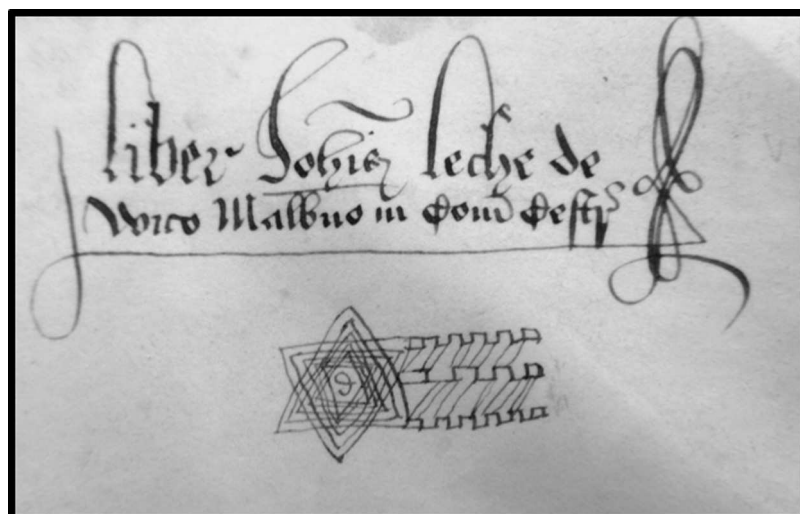 liber Johis leche de
Wico Malbno in Com Cestr